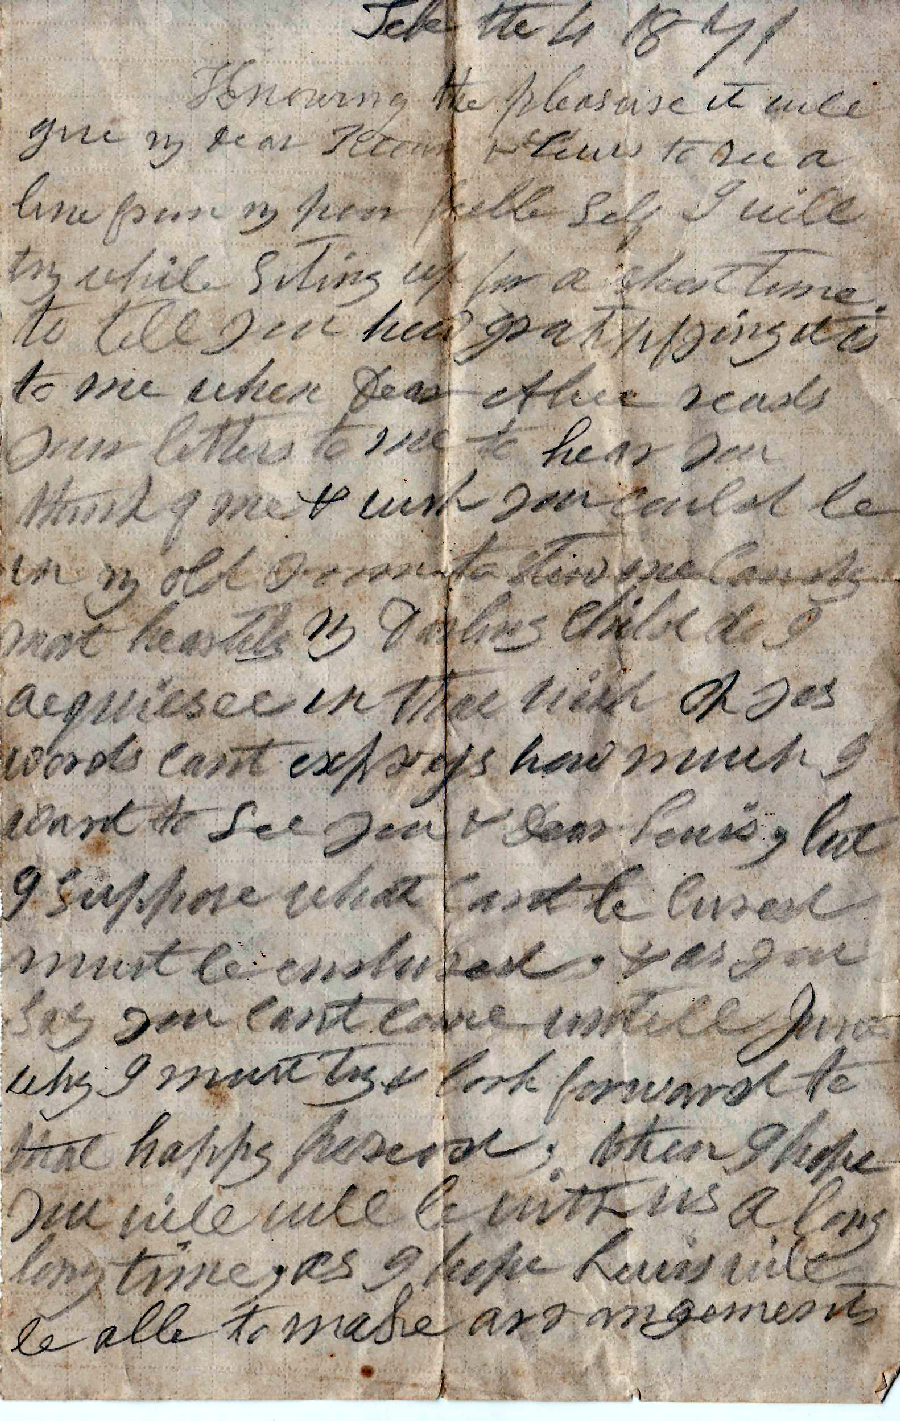 the 4 1871
Knowing the pleasure it will
give my dear & Louis to see a
line from my poor feble Self I will
try while Siting up for a short time
to tell you how it is
to me when Dear Alice reads
your letters to me to hear you
think of me & wish you could be
in my old room to
most heartily my Darling Child do I
acquiesce in that wish Oh yes
words cant express how much I
want to See you & Dear Louis, but
I Suppose what cant be cured
must be endured, & as you
Say you cant come untill June
why I must try & look forward to
that happy period; then I hope
you will will be with us a long
long time, as I hope Louis will
be able to make arrangements